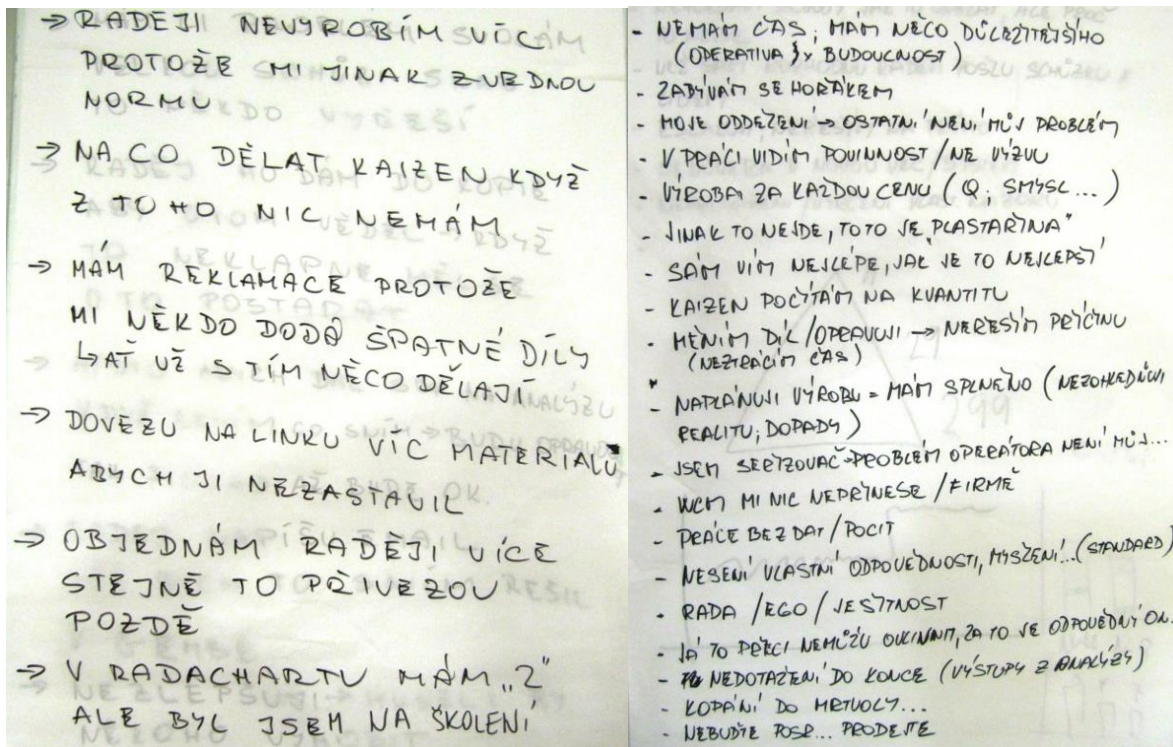 → RADĚJI NEVYROBÍM VÍC
PROTOŽE MI JINAK ZVEDNOU
NORMU
→ NA CO DĚLAT KAIZEN KDYŽ
Z TOHO NIC NEMÁM
→ MÁM REKLAMACE PROTOŽE
MI NĚKDO DODÁ ŠPATNÉ DÍLY
↳ AŤ UŽ S TÍM NĚCO DĚLAJÍ
→ DOVEZU NA LINKU VÍC MATERIALŮ
ABYCH JI NEZASTAVIL
→ OBJEDNÁM RADĚJI VÍCE
STEJNĚ TO PŘIVEZOU
POZDĚ
→ V RADACHARTU MÁM „2"
ALE BYL JSEM NA ŠKOLENÍ
- NEMÁM ČAS, MÁM NĚCO DŮLEŽITĚJŠÍHO
(OPERATIVA x BUDOUCNOST)
- ZABÝVÁM SE HORÁKEM
- MOJE ODDĚLENÍ → OSTATNÍ NENÍ MŮJ PROBLÉM
- V PRÁCI VIDÍM POVINNOST / NE VÝZVU
- VÝROBA ZA KAŽDOU CENU (Q, SMYSL...)
- JINAK TO NEJDE, TOTO JE PLASTAŘINA"
- SÁM VÍM NEJLÉPE, JAK JE TO NEJLEPŠÍ
- KAIZEN POČÍTÁM NA KVANTITU
- MĚNÍM DÍL / OPRAVUJI → NEŘEŠÍM PŘÍČINU
(NEZTRÁCÍM ČAS)
- NAPLÁNUJI VÝROBU = MÁM SPLNĚNO (NEZOHLEDŇUJI
REALITU, DOPADY)
- JSEM SEŘIZOVAČ → PROBLÉM OPERÁTORA NENÍ MŮJ...
- WCM MI NIC NEPŘINESE / FIRMĚ
- PRÁCE BEZ DAT / POCIT
- NESENÍ VLASTNÍ ODPOVĚDNOSTI, MYŠLENÍ... (STANDARD)
- RADA / EGO / JEŠITNOST
- JÁ TO PŘECI NEMŮŽU OVLIVNIT, ZA TO JE ODPOVĚDNÝ ON.
- NEDOTAŽENÍ DO KONCE (VÝSTUPY Z ANALÝZY)
- KOPÁNÍ DO MRTVOLY...
- NEBUĎTE POSR... PRODEJTE